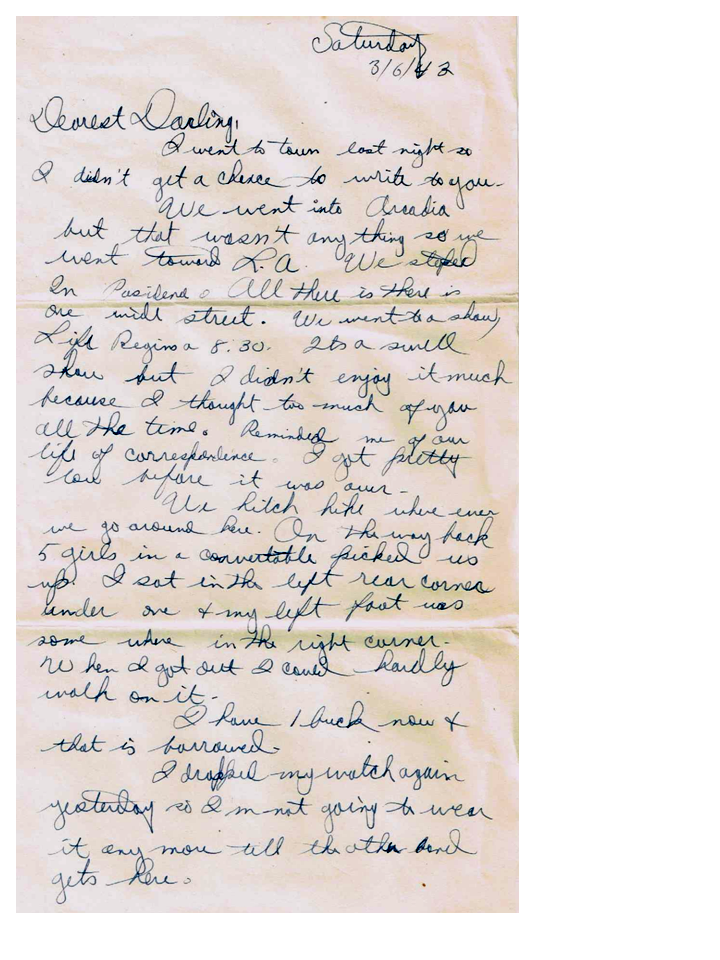 Saturday
3/6/42
Dearest Darling,
I went to town last night so
I didn't get a chance to write to you.
We went into Arcadia
but that wasn't any thing so we
went toward L.A. We stoped
In Pasidena. All there is there is
one wide street. We went to a show,
Life Begins a 8:30. Its a swell
show but I didn't enjoy it much
because I thought too much of you
all the time. Reminded me of our
life of correspondence. I got pretty
low before it was over.
We hitch hike where ever
we go around here. On the way back
5 girls in a convertable picked us
up. I sat in the left rear corner
under one & my left foot was
some where in the right corner.
When I got out I could hardly
walk on it.
I have 1 buck now &
that is borrowed.
I dropped my watch again
yesterday so I'm not going to wear
it any more tell the other band
gets here.